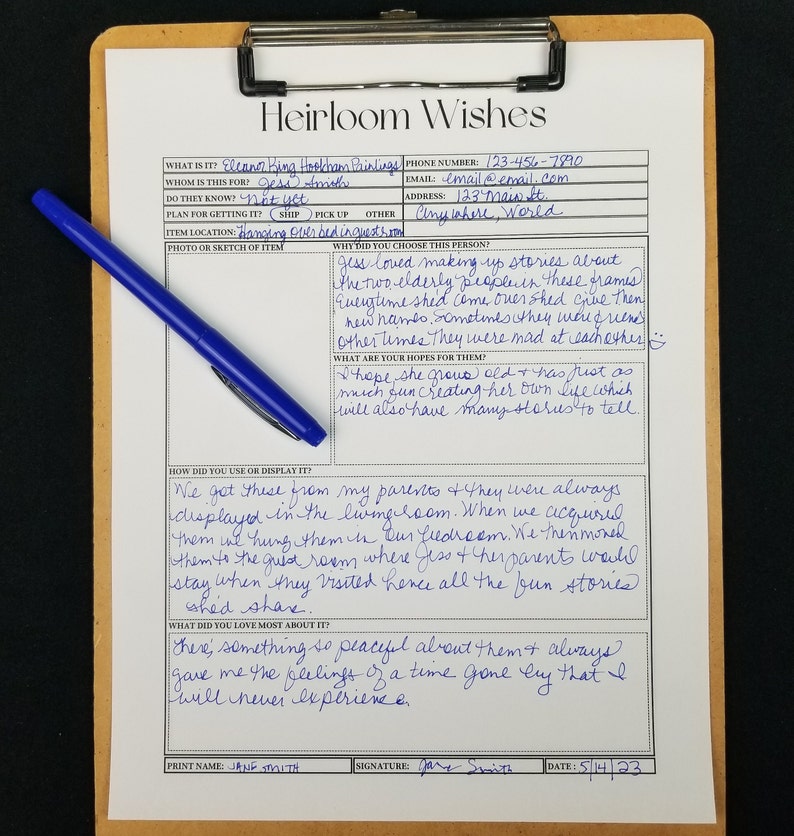 Heirloom Wishes
WHAT IS IT? Eleanor King Hookham Paintings
PHONE NUMBER: 123-456-7890
WHOM IS THIS FOR? Jess Smith
EMAIL: email@email.com
DO THEY KNOW? Not yet
ADDRESS: 123 Main St.
PLAN FOR GETTING IT? SHIP PICK UP OTHER
Anywhere, World
ITEM LOCATION: Hanging over bed in guest room
PHOTO OR SKETCH OF ITEM
WHY DID YOU CHOOSE THIS PERSON?
Jess loved making up stories about
the two elderly people in these frames
Everytime she'd come over she'd give them
new names. Sometimes they were friends
other times they were mad at each other
WHAT ARE YOUR HOPES FOR THEM?
I hope she grows old & has just as
much fun creating her own life which
will also have many stories to tell.
HOW DID YOU USE OR DISPLAY IT?
We got these from my parents & they were always
displayed in the living room. When we acquired
them we hung them in our bedroom. We then moved
them to the guest room where Jess & her parents would
stay when they visited hence all the fun stories
she'd share.
WHAT DID YOU LOVE MOST ABOUT IT?
There's something so peaceful about them & always
gave me the feelings of a time gone by that I
will never experience.
PRINT NAME: JANE SMITH
SIGNATURE: Jane Smith
DATE: 5/14/23